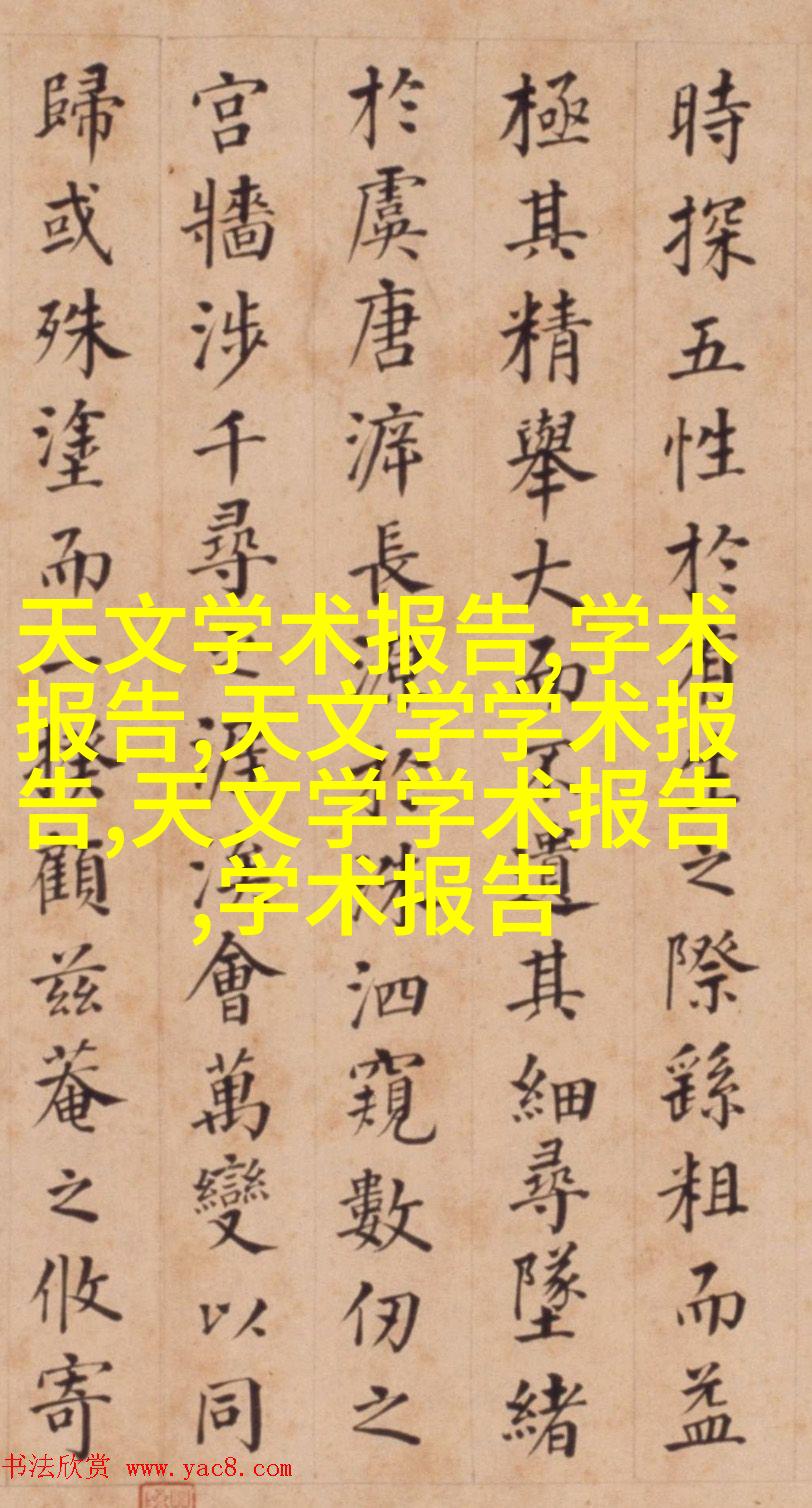 時探五性於有生之際繇粗而益
極其精舉大而不遺其細尋墜緒
於虞唐長源於洙泗窺數仞之
宮牆涉千尋之涯涘會萬變以同
歸或殊塗而一揆顧茲菴之攸寄
天文学术报告,学术
报告,天文学学术报
告,天文学学术报告
,学术报告
书法欣赏 www.yac8.com